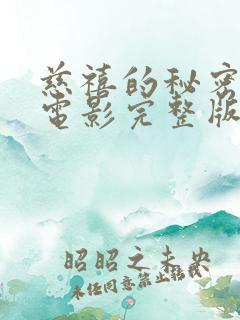 慈禧的秘密
電影完整版
昭昭之未央
未任同意禁止转载